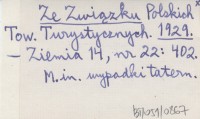 Ze Związku Polskich
Tow. Turystycznych. 1929.
— Ziemia 14, nr 22: 402.
M.in. wypadki tatern.